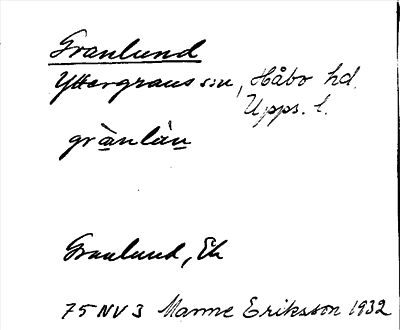 Granlund
Yttergrans sn, Håbo hd.
Upps. l.
grànlùn
Granlund, Eh
75 NV 3 Manne Eriksson 1932